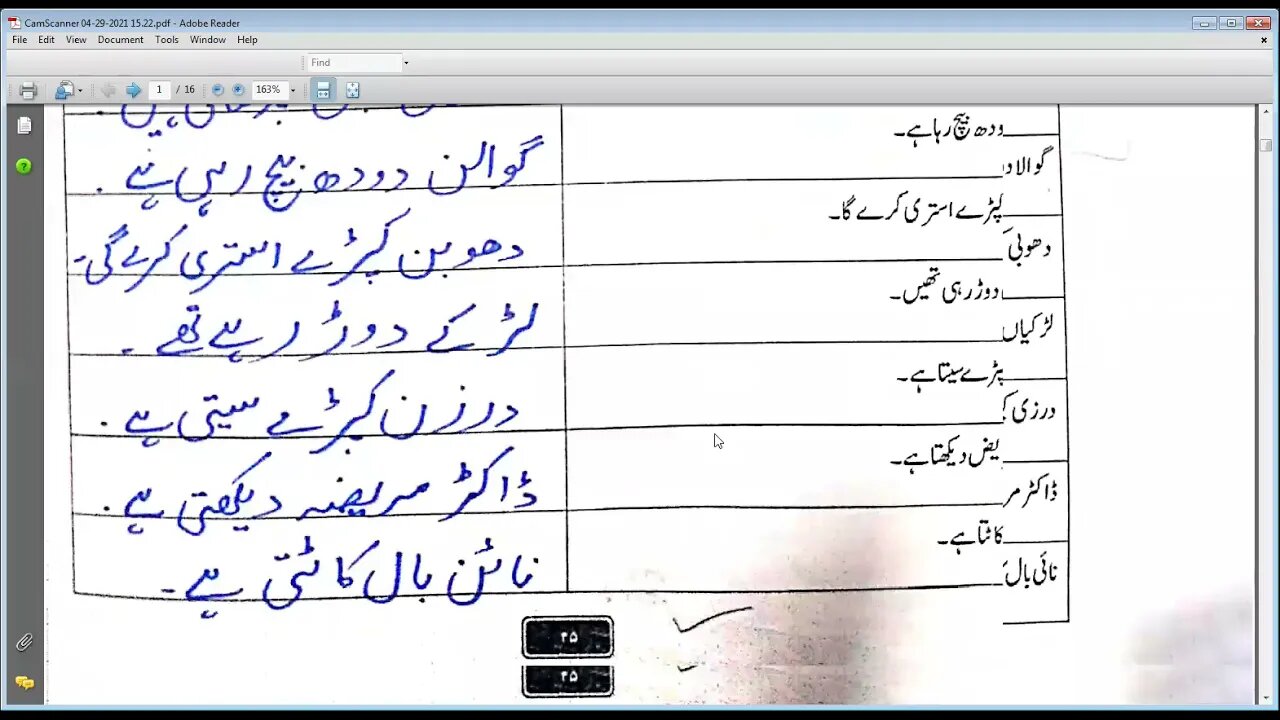 CamScanner 04-29-2021 15.22.pdf - Adobe Reader
File Edit View Document Tools Window Help
Find
1 / 16 163%
ودھ بیچ رہا ہے۔
گوالا د
گوالن دودھ بیچ رہی ہے۔
کپڑے استری کرے گا۔
دھوبی
دھوبن کپڑے استری کرے گی۔
دوڑ رہی تھیں۔
لڑکیاں
لڑکے دوڑ رہے تھے۔
پڑے سیتا ہے۔
درزی ک
درزن کپڑے سیتی ہے۔
یض دیکھتا ہے۔
ڈاکٹر مر
ڈاکٹر مریضہ دیکھتی ہے۔
کاٹتا ہے۔
نائی بال
نائن بال کاٹتی ہے۔
۲۵
۲۵